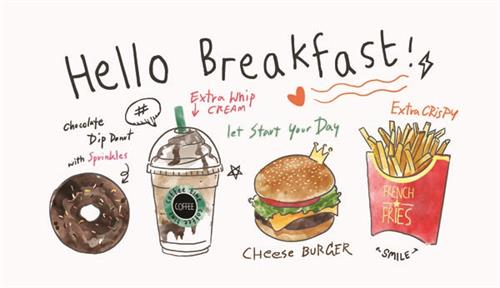 Hello Breakfast!
Extra Whip
CREAM
#
Chocolate
Dip Donut
with Sprinkles
let Start Your Day
Extra CRispy
COFFEE
Coffee Time
FRENCH
FRIES
Cheese BURGER
SMILE